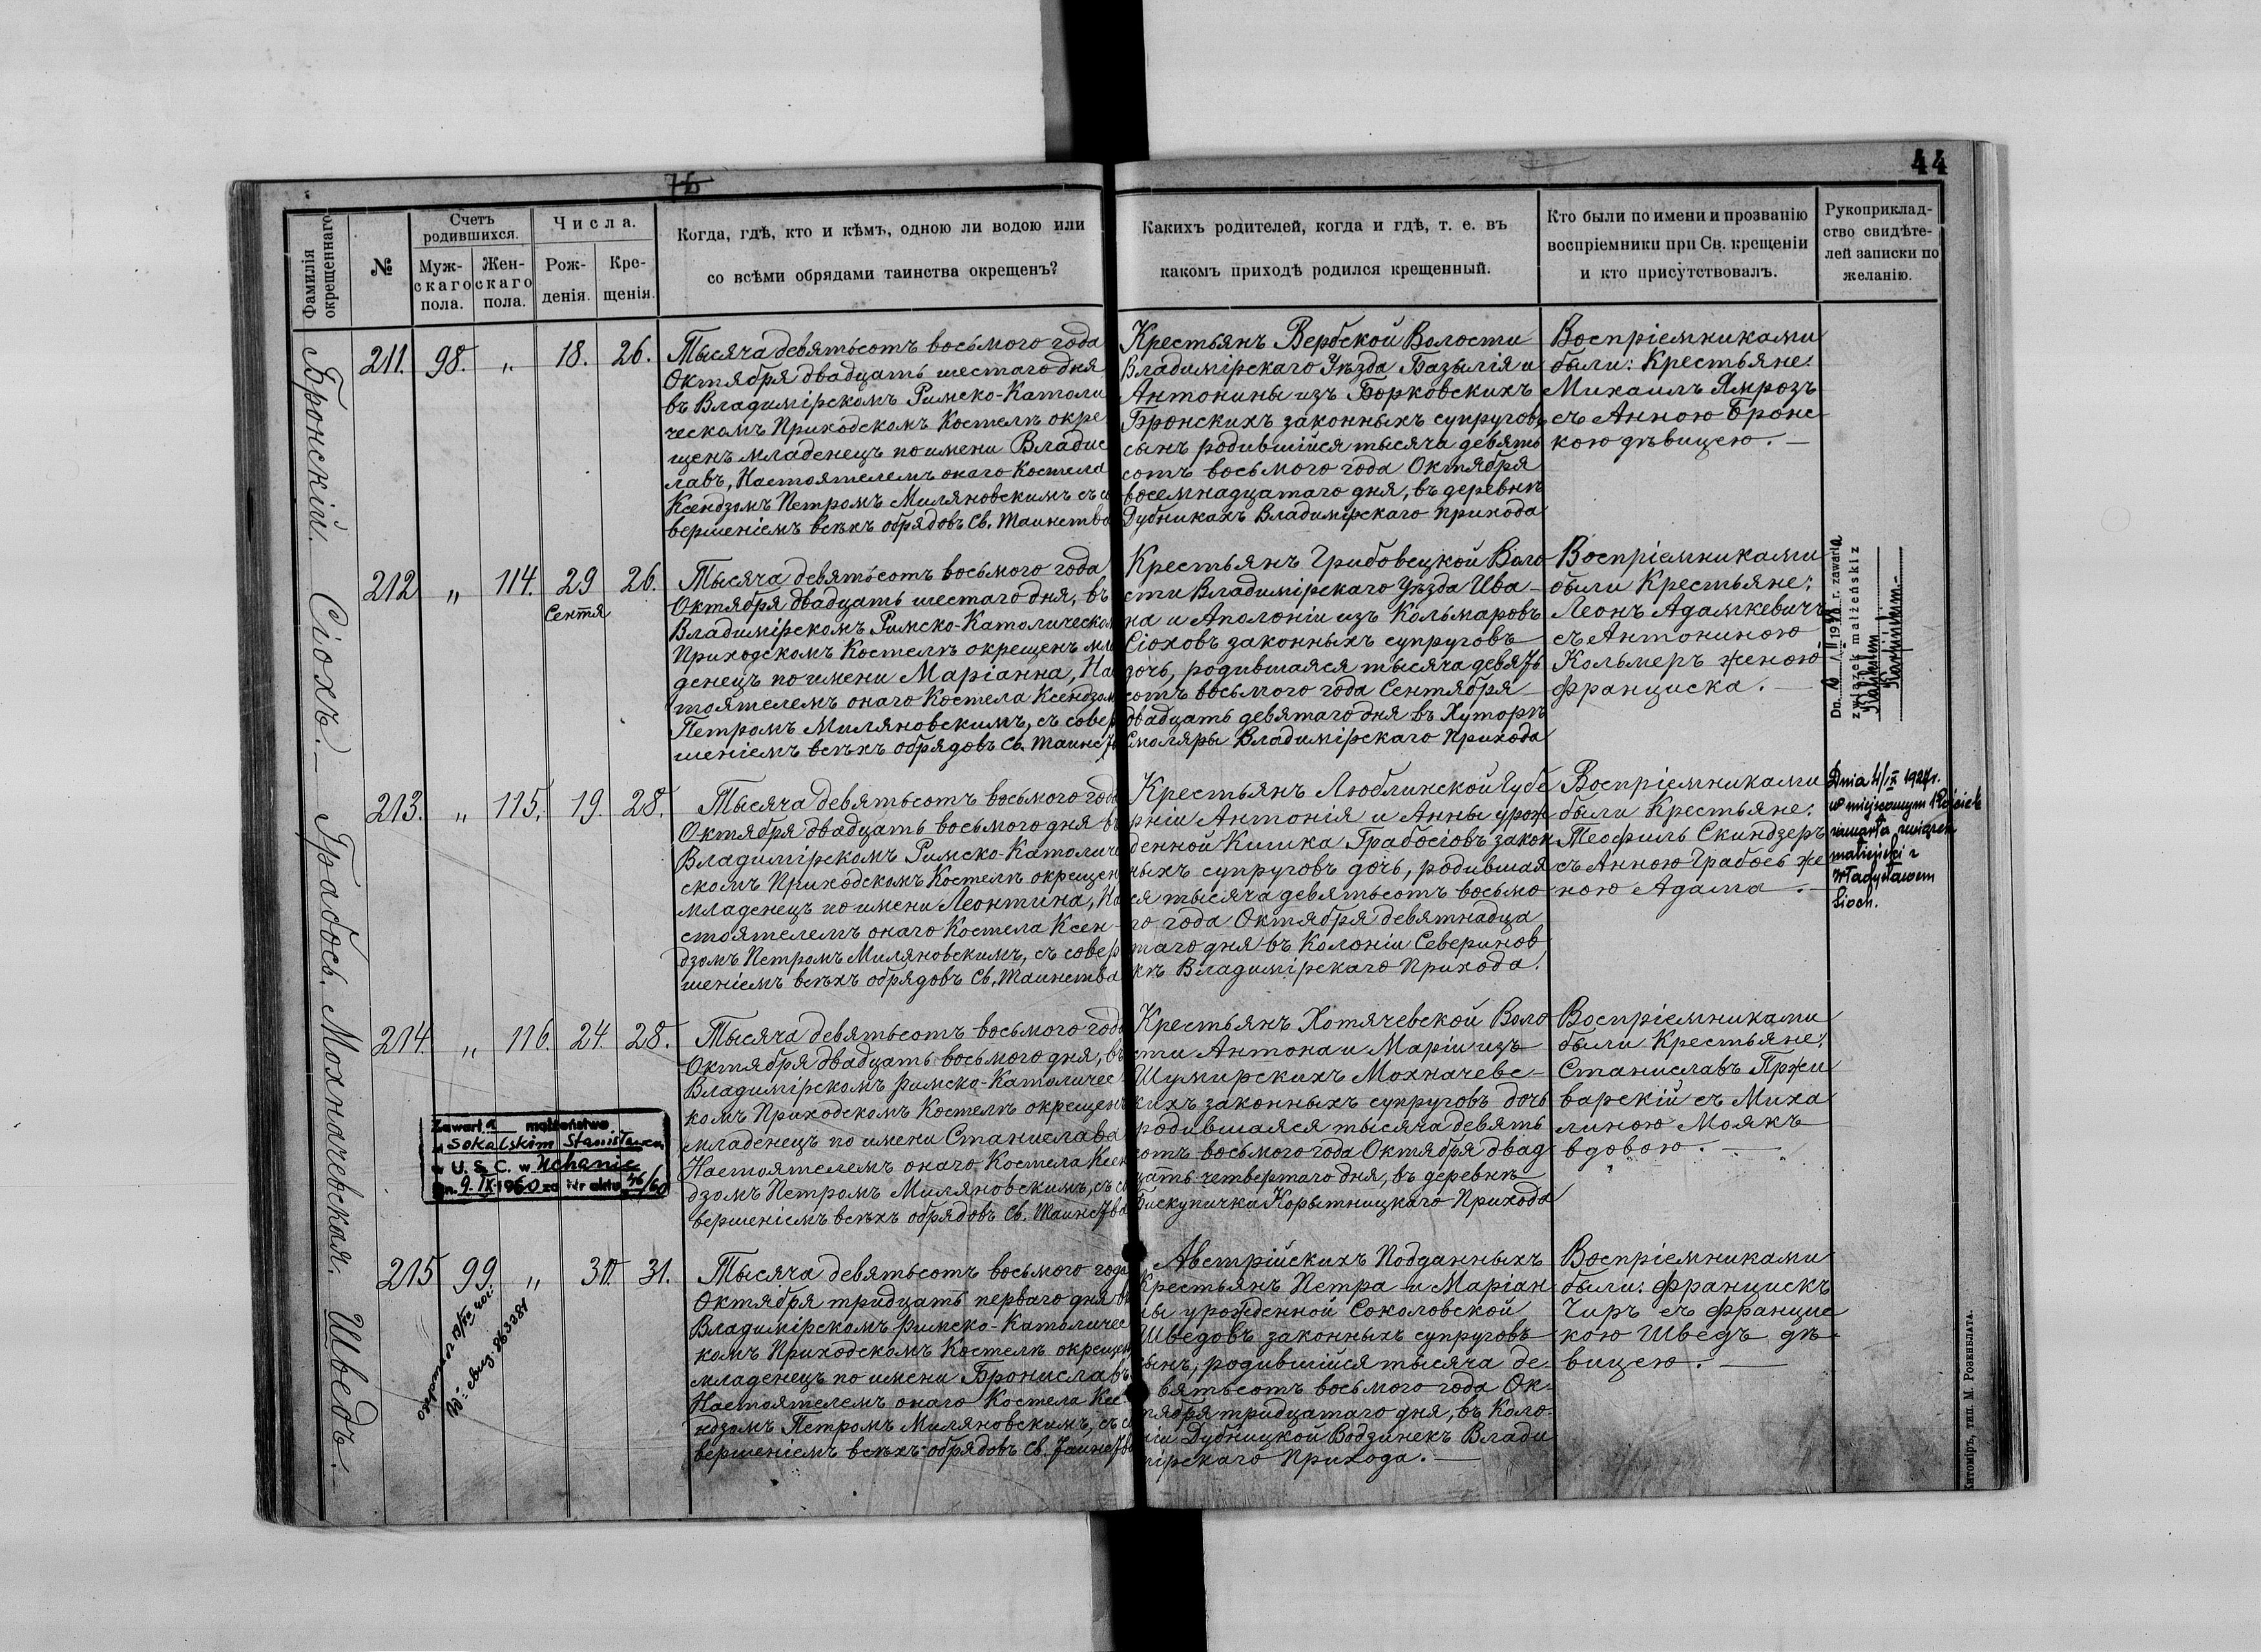 76
44
Фамилія окрещеннаго
№
Счетъ родившихся.
Муж-
скаго
пола.
Жен-
скаго
пола.
Числа.
Рож-
денія.
Кре-
щенія.
Когда, гдѣ, кто и кѣмъ, одною ли водою или
со всѣми обрядами таинства окрещенъ?
Какихъ родителей, когда и гдѣ, т. е. въ
какомъ приходѣ родился крещенный.
Кто были по имени и прозванію
воспріемники при Св. крещеніи
и кто присутствовалъ.
Рукоприклад-
ство свидѣте-
лей записки по
желанію.
Бронскій.
211. 98. „ 18. 26.
Тысяча девятьсотъ восьмого года
Октября двадцать шестаго дня
въ Владимірскомъ Римско-Католи
ческомъ Приходскомъ Костелѣ окре
щенъ младенецъ по имени Владис
лавъ, Настоятелемъ онаго Костела
Ксендзомъ Петромъ Миляновскимъ съ со
вершеніемъ всѣхъ обрядовъ Св. Таинства
Крестьянъ Вербской Волости
Владимірскаго Уѣзда Базылія и
Антонины изъ Борковскихъ
Бронскихъ законныхъ супруговъ
сынъ родившійся тысяча девять
сотъ восьмого года Октября
восемнадцатаго дня, въ деревнѣ
Дубникахъ Владимірскаго прихода
Воспріемниками
были: Крестьяне:
Михаилъ Ямрозъ
съ Анною Бронс
кою дѣвицею. —
Сіохъ.
212 „ 114. 29 26.
Сентя
Тысяча девятьсотъ восьмого года
Октября двадцать шестаго дня, въ
Владимірскомъ Римско-Католическом
Приходскомъ Костелѣ окрещенъ мла
денецъ по имени Маріанна, Нас
тоятелемъ онаго Костела Ксендзом
Петромъ Миляновскимъ, съ совер
шеніемъ всѣхъ обрядовъ Св. Таинства
Крестьянъ Грибовецкой Воло
сти Владимірскаго Уѣзда Ива-
на и Аполоніи изъ Кольмаровъ
Сіоховъ законныхъ супруговъ
дочь, родившаяся тысяча девять
сотъ восьмого года Сентября
двадцать девятаго дня въ Хуторѣ
Смоляры Владимірскаго Прихода
Воспріемниками
были Крестьяне:
Леонъ Адамкевичъ
съ Антониною
Кольмеръ женою
Франциска. —
r. zawarła
związek małżeński z
Грабось.
213. „ 115. 19. 28.
Тысяча девятьсотъ восьмого года
Октября двадцать восьмого дня въ
Владимірскомъ Римско-Католиче
скомъ Приходскомъ Костелѣ окрещен
младенецъ по имени Леонтина, На
стоятелемъ онаго Костела Ксен-
дзомъ Петромъ Миляновскимъ, съ совер
шеніемъ всѣхъ обрядовъ Св. Таинства
Крестьянъ Люблинской Губе
рніи Антонія и Анны урож
денной Кишка Грабосіовъ закон
ныхъ супруговъ дочь, родившая
ся тысяча девятьсотъ восьмо
го года Октября девятнадца
таго дня въ Колоніи Северинов
кѣ Владимірскаго Прихода.
Воспріемниками
были Крестьяне:
Теофиль Скиндзеръ
съ Анною Грабось же
ною Адама. —
Dnia 4/IX 1927 r.
w miejscowym kościele
zawarła związek
małżeński z
Władysławem
Sioch.
Мохначевская.
214. „ 116. 24. 28.
Тысяча девятьсотъ восьмого года
Октября двадцать восьмого дня, въ
Владимірскомъ Римско-Католичес
комъ Приходскомъ Костелѣ окрещенъ
младенецъ по имени Станислава
Настоятелемъ онаго Костела Ксен
дзомъ Петромъ Миляновскимъ, съ со
вершеніемъ всѣхъ обрядовъ Св. Таинства
Zawarła małżeństwo
z Sokalskim Stanisławem
w U. S. C. w Uchanie
dn. 9. IX 1960 za Nr aktu 46/60
Крестьянъ Хотячевской Воло
сти Антона и Маріи изъ
Шумирскихъ Мохначевс-
кихъ законныхъ супруговъ дочь
родившаяся тысяча девять
сотъ восьмого года Октября двад
цать четвертаго дня, въ деревнѣ
Бискупичка Корытницкаго Прихода
Воспріемниками
были Крестьяне:
Станиславъ Пржи
варскій съ Миха
линою Моякъ
вдовою. —
Шведъ.
215 99. „ 30. 31.
Тысяча девятьсотъ восьмого года
Октября тридцать перваго дня въ
Владимірскомъ Римско-Католичес
комъ Приходскомъ Костелѣ окрещен
младенецъ по имени Брониславъ
Настоятелемъ онаго Костела Ксе
ндзомъ Петромъ Миляновскимъ, съ со
вершеніемъ всѣхъ обрядовъ Св. Таинства
Австрійскихъ Подданныхъ
Крестьянъ Петра и Маріан
ны урожденной Соколовской
Шведовъ законныхъ супруговъ
сынъ, родившійся тысяча де-
вятьсотъ восьмого года Ок-
тября тридцатаго дня, въ Коло-
ніи Дубницкой Водзинекъ Влади
мірскаго Прихода. —
Воспріемниками
были: Францискъ
Чиръ съ Францис
кою Шведъ дѣ-
вицею. —
Житоміръ, тип. М. Розенблата.